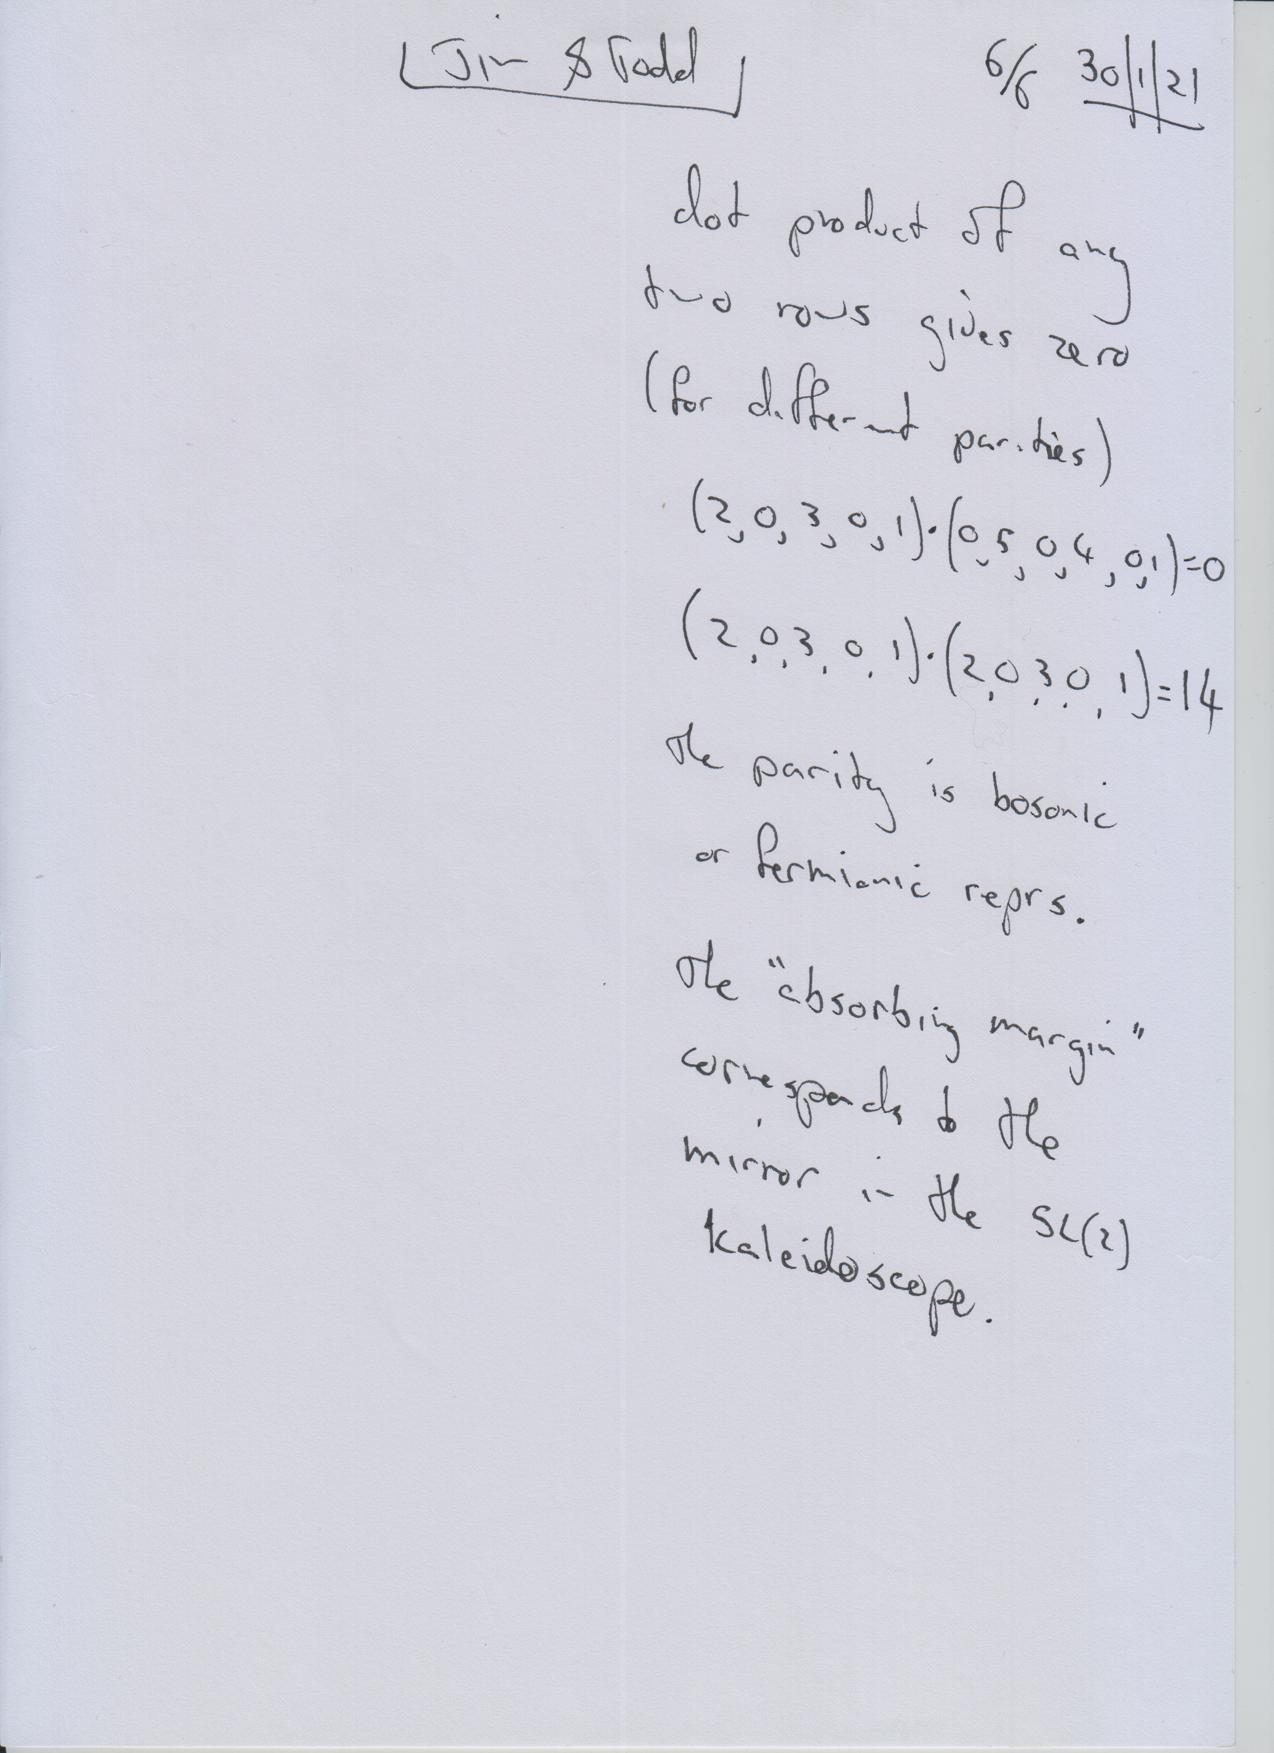 Jim & Todd
6/6 30/1/21
dot product of any
two rows gives zero
(for different parities)
(2,0,3,0,1)·(0,5,0,4,0,1)=0
(2,0,3,0,1)·(2,0,3,0,1)=14
the parity is bosonic
or fermionic reprs.
the "absorbing margin"
corresponds to the
mirror in the SL(2)
kaleidoscope.